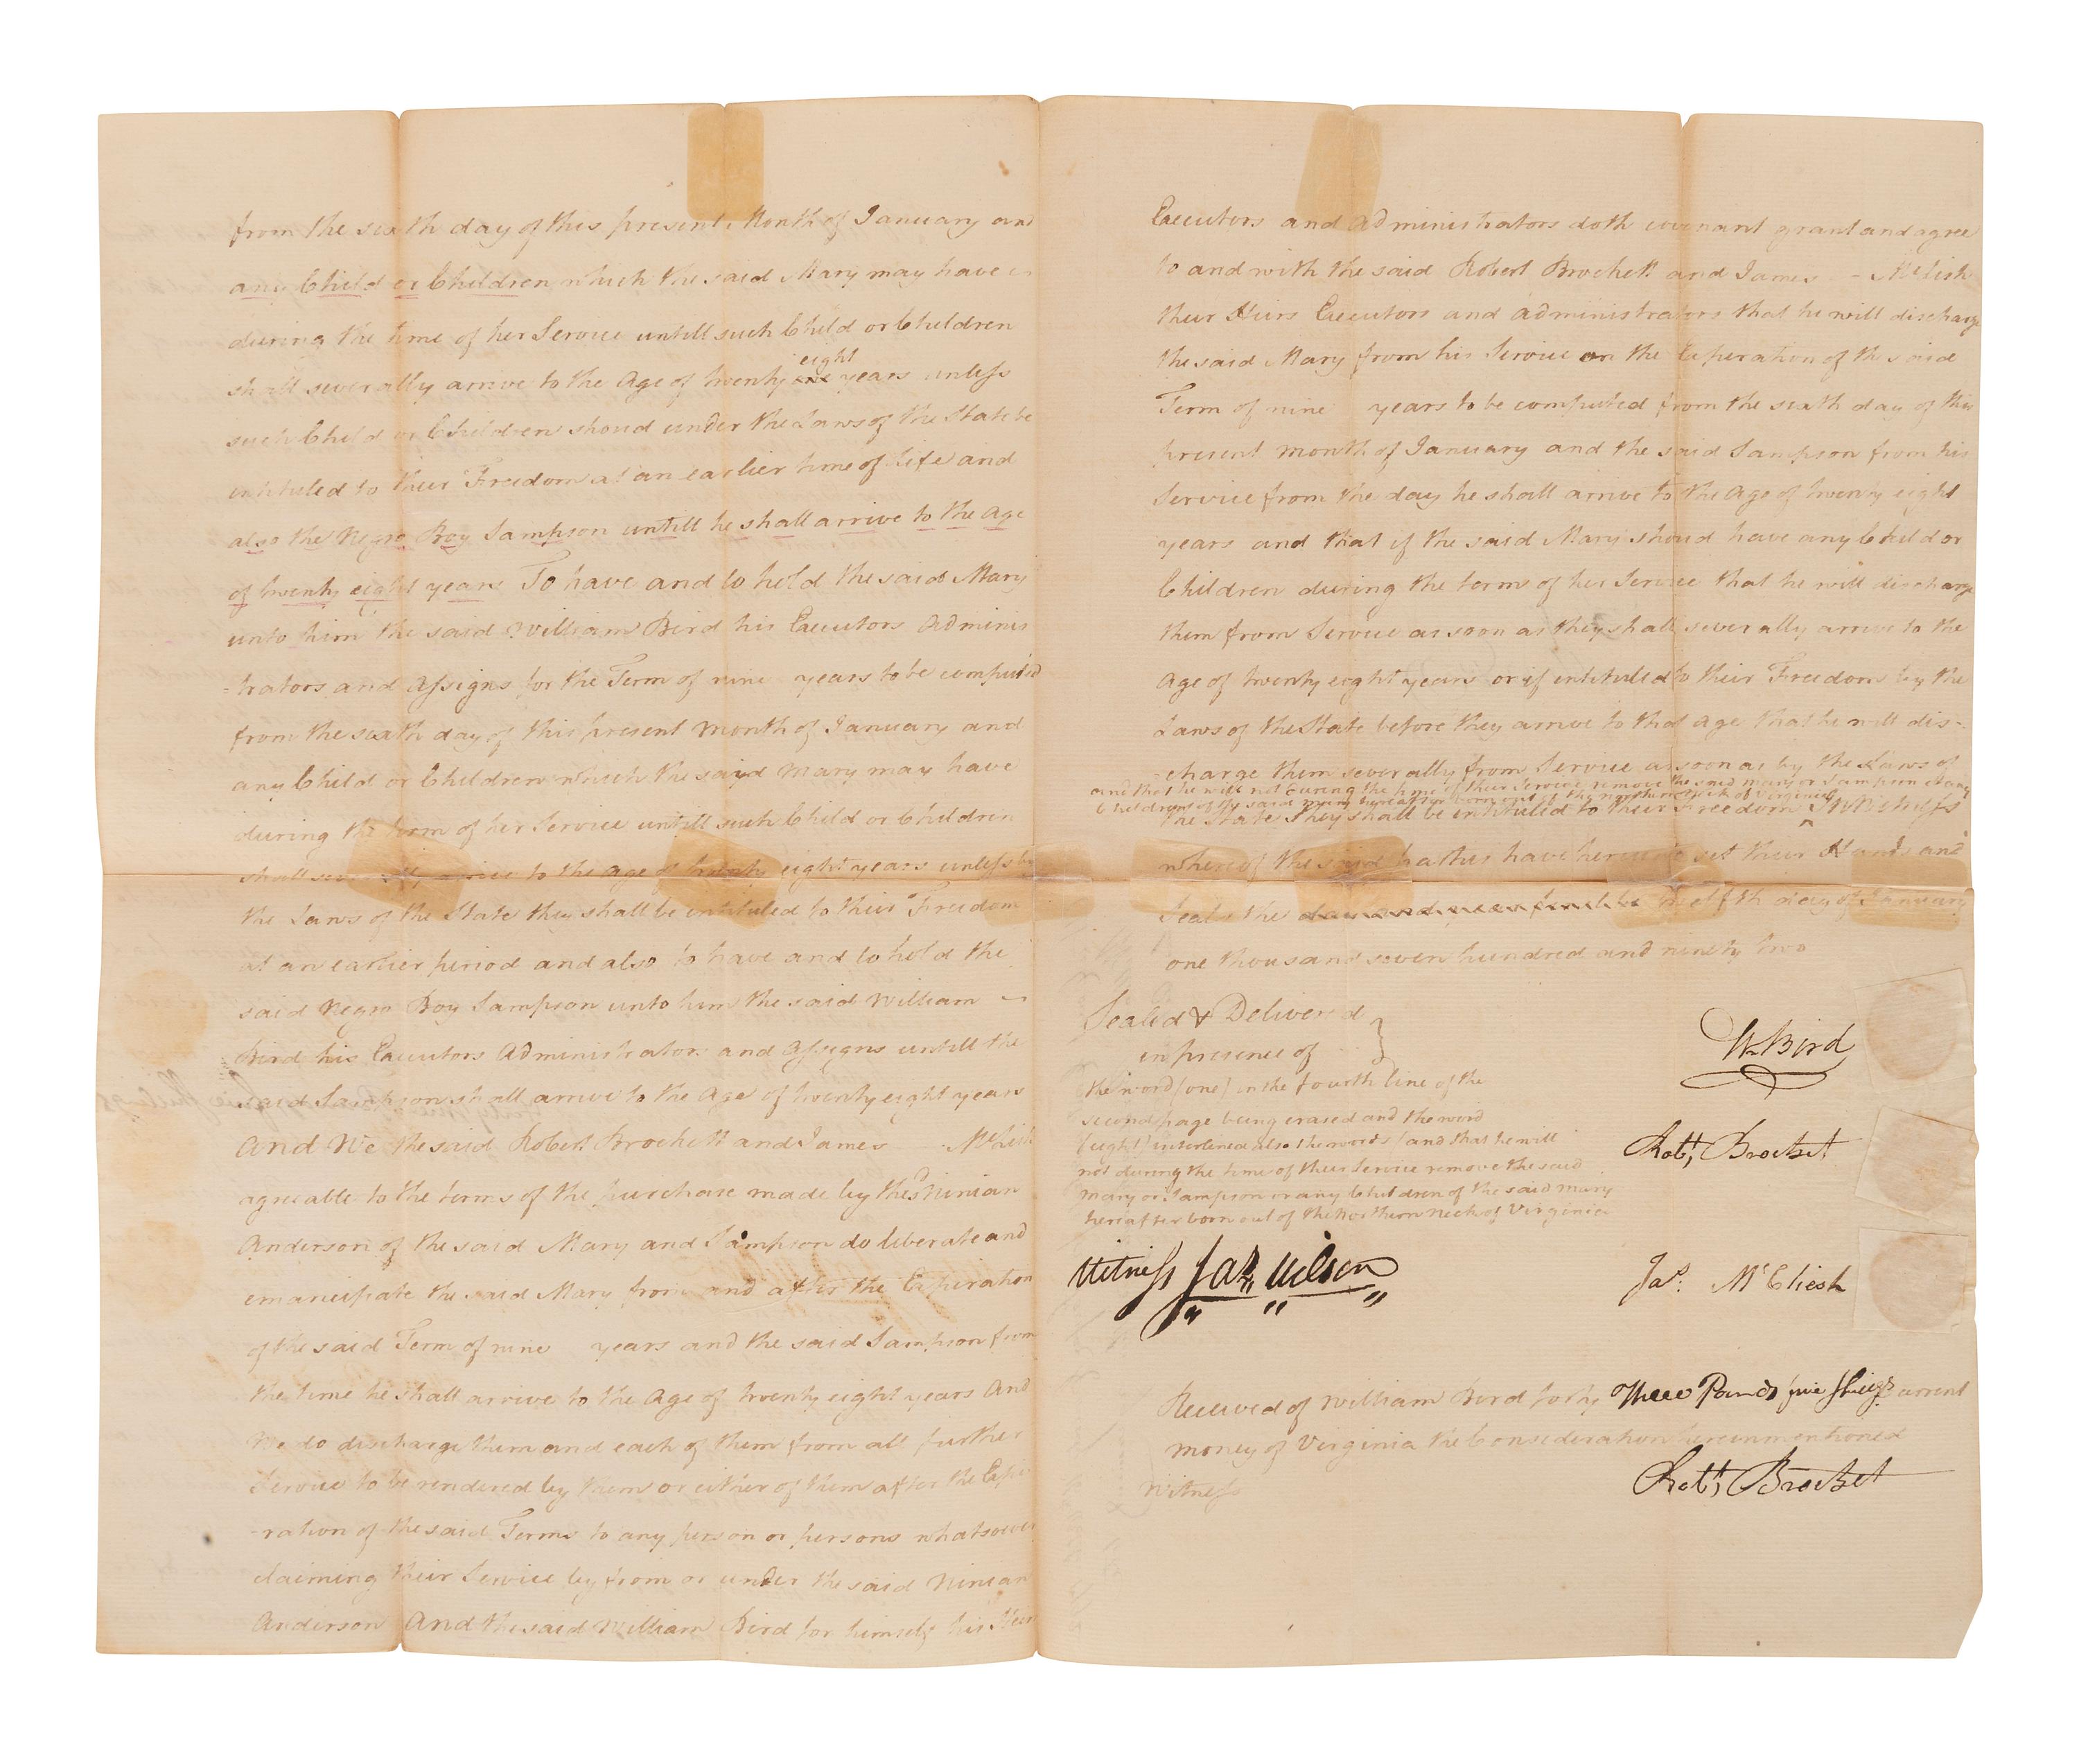 from the sixth day of this present Month of January and
any Child or Children which the said Mary may have
during the time of her Service untill such Child or Children
shall severally arrive to the Age of twenty one eight years unless
such Child or Children shoud under the Laws of the State be
intituled to their Freedom at an earlier time of life and
also the Negro Boy Sampson untill he shall arrive to the age
of twenty eight years To have and to hold the said Mary
unto him the said William Bird his Executors Adminis
-trators and Assigns for the Term of nine years to be computed
from the sixth day of this present month of January and
any Child or Children which the said Mary may have
during the term of her Service untill such Child or Children
shall severally arrive to the age of twenty eight years unless by
the Laws of the State they shall be intituled to their Freedom
at an earlier period and also to have and to hold the
said Negro Boy Sampson unto him the said William
Bird his Executors Administrators and Assigns untill the
said Sampson shall arrive to the Age of twenty eight years
and We the said Robert Brockett and James McLish
agreeable to the terms of the purchase made by the Ninian
Anderson of the said Mary and Sampson do liberate and
emancipate the said Mary from and after the Expiration
of the said Term of nine years and the said Sampson from
the time he shall arrive to the Age of twenty eight years And
We do discharge them and each of them from all further
Service to be rendered by them or either of them after the Expi
-ration of the said Terms to any person or persons whatsoever
claiming their Service by from or under the said Ninian
Anderson And the said William Bird for himself his Heirs
Executors and Administrators doth covenant grant and agree
to and with the said Robert Brockett and James - McLish
their Heirs Executors and Administrators that he will discharge
the said Mary from his Service on the Experation of the said
Term of nine years to be computed from the sixth day of this
present month of January and the said Sampson from his
Service from the day he shall arrive to the Age of twenty eight
years and that if the said Mary shoud have any Child or
Children during the term of her Service that he will discharge
them from Service as soon as they shall severally arrive to the
Age of twenty eight years or if intituled to their Freedom by the
Laws of the State before they arrive to that age that he will dis-
charge them severally from Service as soon as by the Laws of
and that he will not during the time of their Service remove the said Mary or Sampson or any
Children of the said Mary hereafter born out of the Northern Neck of Virginia
the State they shall be intituled to their Freedom ^ In Witness
whereof the said parties have hereunto set their Hands and
Seals the day and year first twelfth day of January
one thousand seven hundred and ninety two
Sealed & Delivered
in presence of
the word (one) in the fourth line of the
second page being erased and the word
(eight) interlined also the words (and that he will
not during the time of their Service remove the said
Mary or Sampson or any Children of the said Mary
hereafter born out of the Northern Neck of Virginia
Witness Jas Wilson
Wm Bird
Robt, Brocket
Jas. McCliesh
Received of William Bird forty Three Pounds five Shillgs current
money of Virginia the Consideration hereinmentioned
Witness
Robt, Brocket